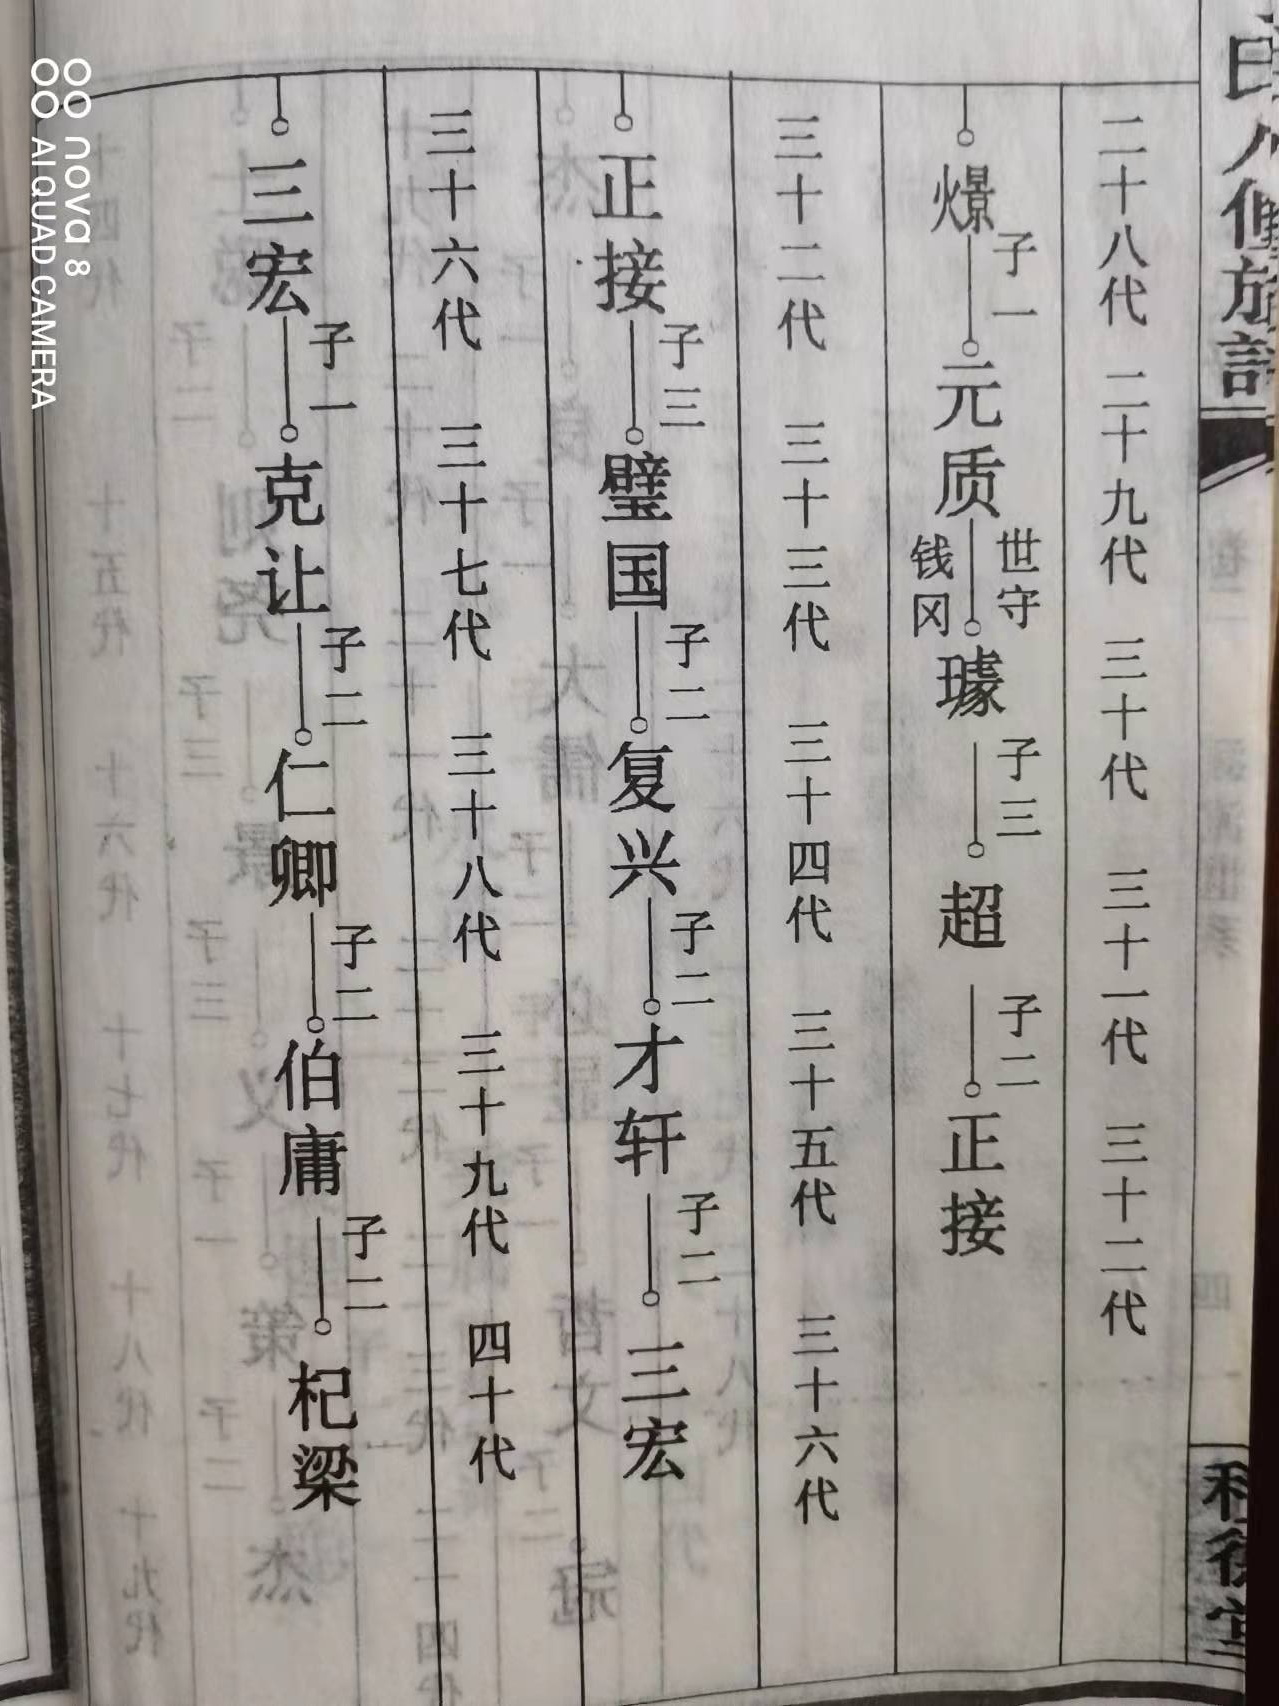 二十八代 二十九代 三十代 三十一代 三十二代
爆 子一 元质 世守 钱冈 璩 子三 超 子二 正接
三十二代 三十三代 三十四代 三十五代 三十六代
正接 子三 璧国 子二 复兴 子二 才轩 子二 三宏
三十六代 三十七代 三十八代 三十九代 四十代
三宏 子一 克让 子二 仁卿 子二 伯庸 子二 杞梁
nova 8
AI QUAD CAMERA